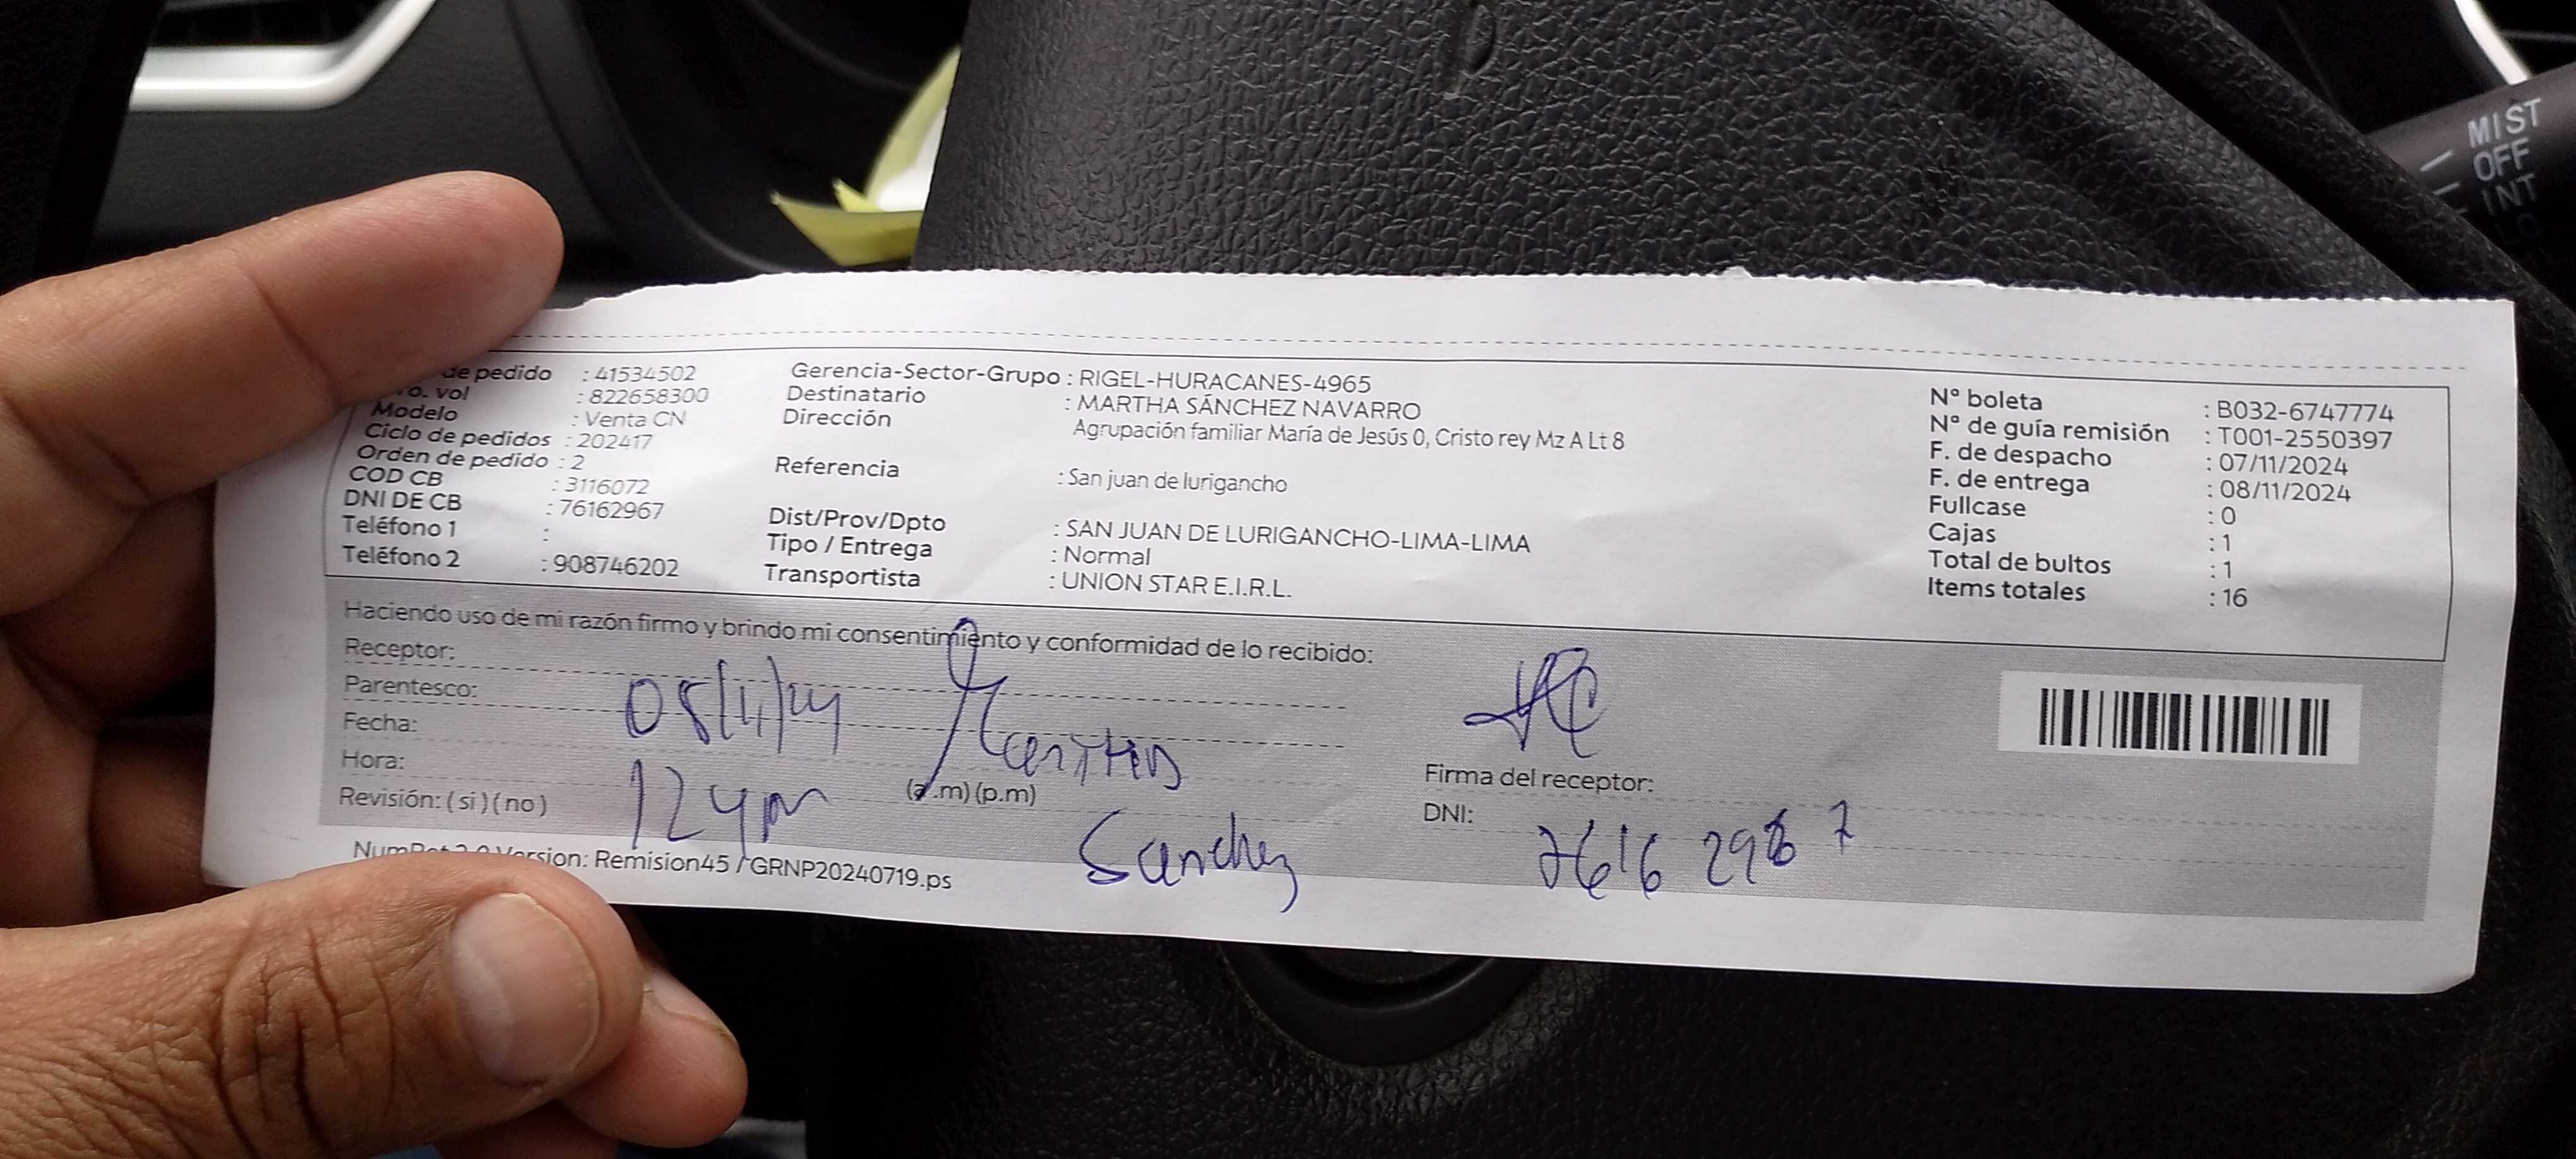 de pedido : 41534502
o. vol : 822658300
Modelo : Venta CN
Ciclo de pedidos : 202417
Orden de pedido : 2
COD CB : 3116072
DNI DE CB : 76162967
Teléfono 1 :
Teléfono 2 : 908746202
Gerencia-Sector-Grupo : RIGEL-HURACANES-4965
Destinatario : MARTHA SÁNCHEZ NAVARRO
Dirección Agrupación familiar María de Jesús 0, Cristo rey Mz A Lt 8
Referencia : San juan de lurigancho
Dist/Prov/Dpto : SAN JUAN DE LURIGANCHO-LIMA-LIMA
Tipo / Entrega : Normal
Transportista : UNION STAR E.I.R.L.
N° boleta : B032-6747774
N° de guía remisión : T001-2550397
F. de despacho : 07/11/2024
F. de entrega : 08/11/2024
Fullcase : 0
Cajas : 1
Total de bultos : 1
Items totales : 16
Haciendo uso de mi razón firmo y brindo mi consentimiento y conformidad de lo recibido:
Receptor:
Parentesco:
Fecha: 08/11/24
Hora: (a.m) (p.m)
Revisión: ( si ) ( no )
Sanchez
Firma del receptor:
DNI: 76162967
Version: Remision45 / GRNP20240719.ps
MIST
OFF
INT
LO